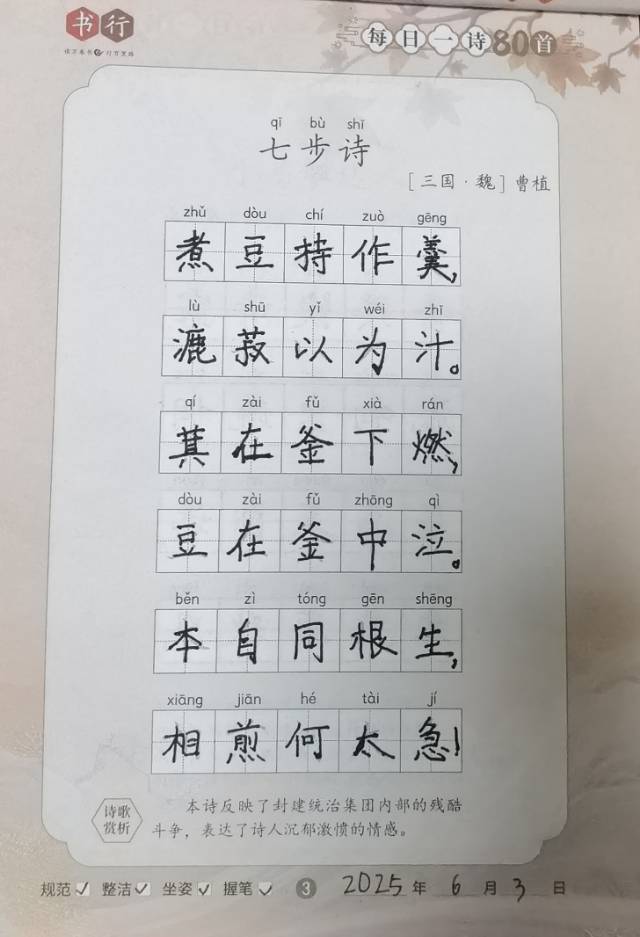 书行
读万卷书 行万里路
每日一诗80首
qī bù shī
七步诗
[三国·魏]曹植
zhǔ dòu chí zuò gēng
煮豆持作羹,
lù shū yǐ wéi zhī
漉菽以为汁。
qí zài fǔ xià rán
萁在釜下燃,
dòu zài fǔ zhōng qì
豆在釜中泣。
běn zì tóng gēn shēng
本自同根生,
xiāng jiān hé tài jí
相煎何太急!
诗歌赏析
本诗反映了封建统治集团内部的残酷
斗争，表达了诗人沉郁激愤的情感。
规范✓ 整洁✓ 坐姿✓ 握笔✓ 3 2025年6月3日